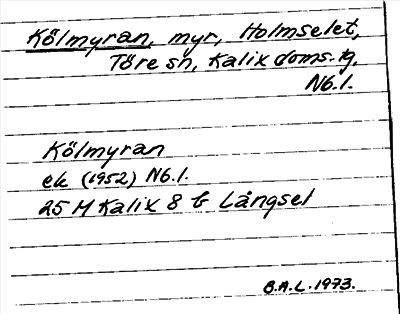 Kölmyran, myr, Holmselet,
Töre sn, Kalix doms. tg.
Nb.l.
Kölmyran
ek (1952) Nb.l.
25 M Kalix 8 b Långsel
B.A.L. 1973.